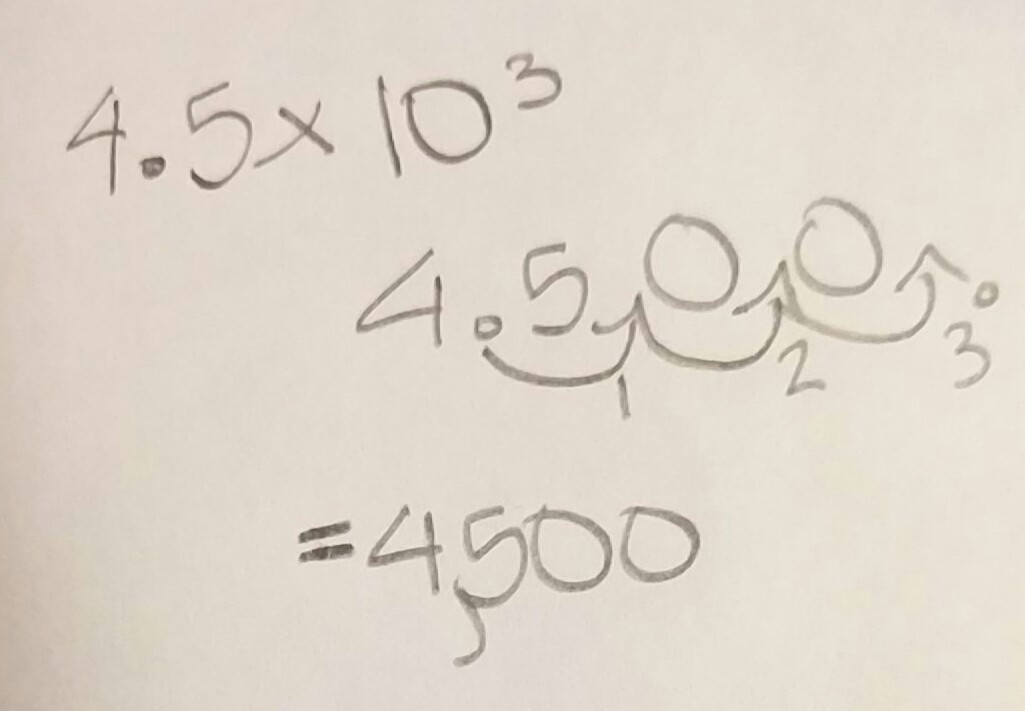 4.5 x 10³
4.500.
1 2 3
= 4,500